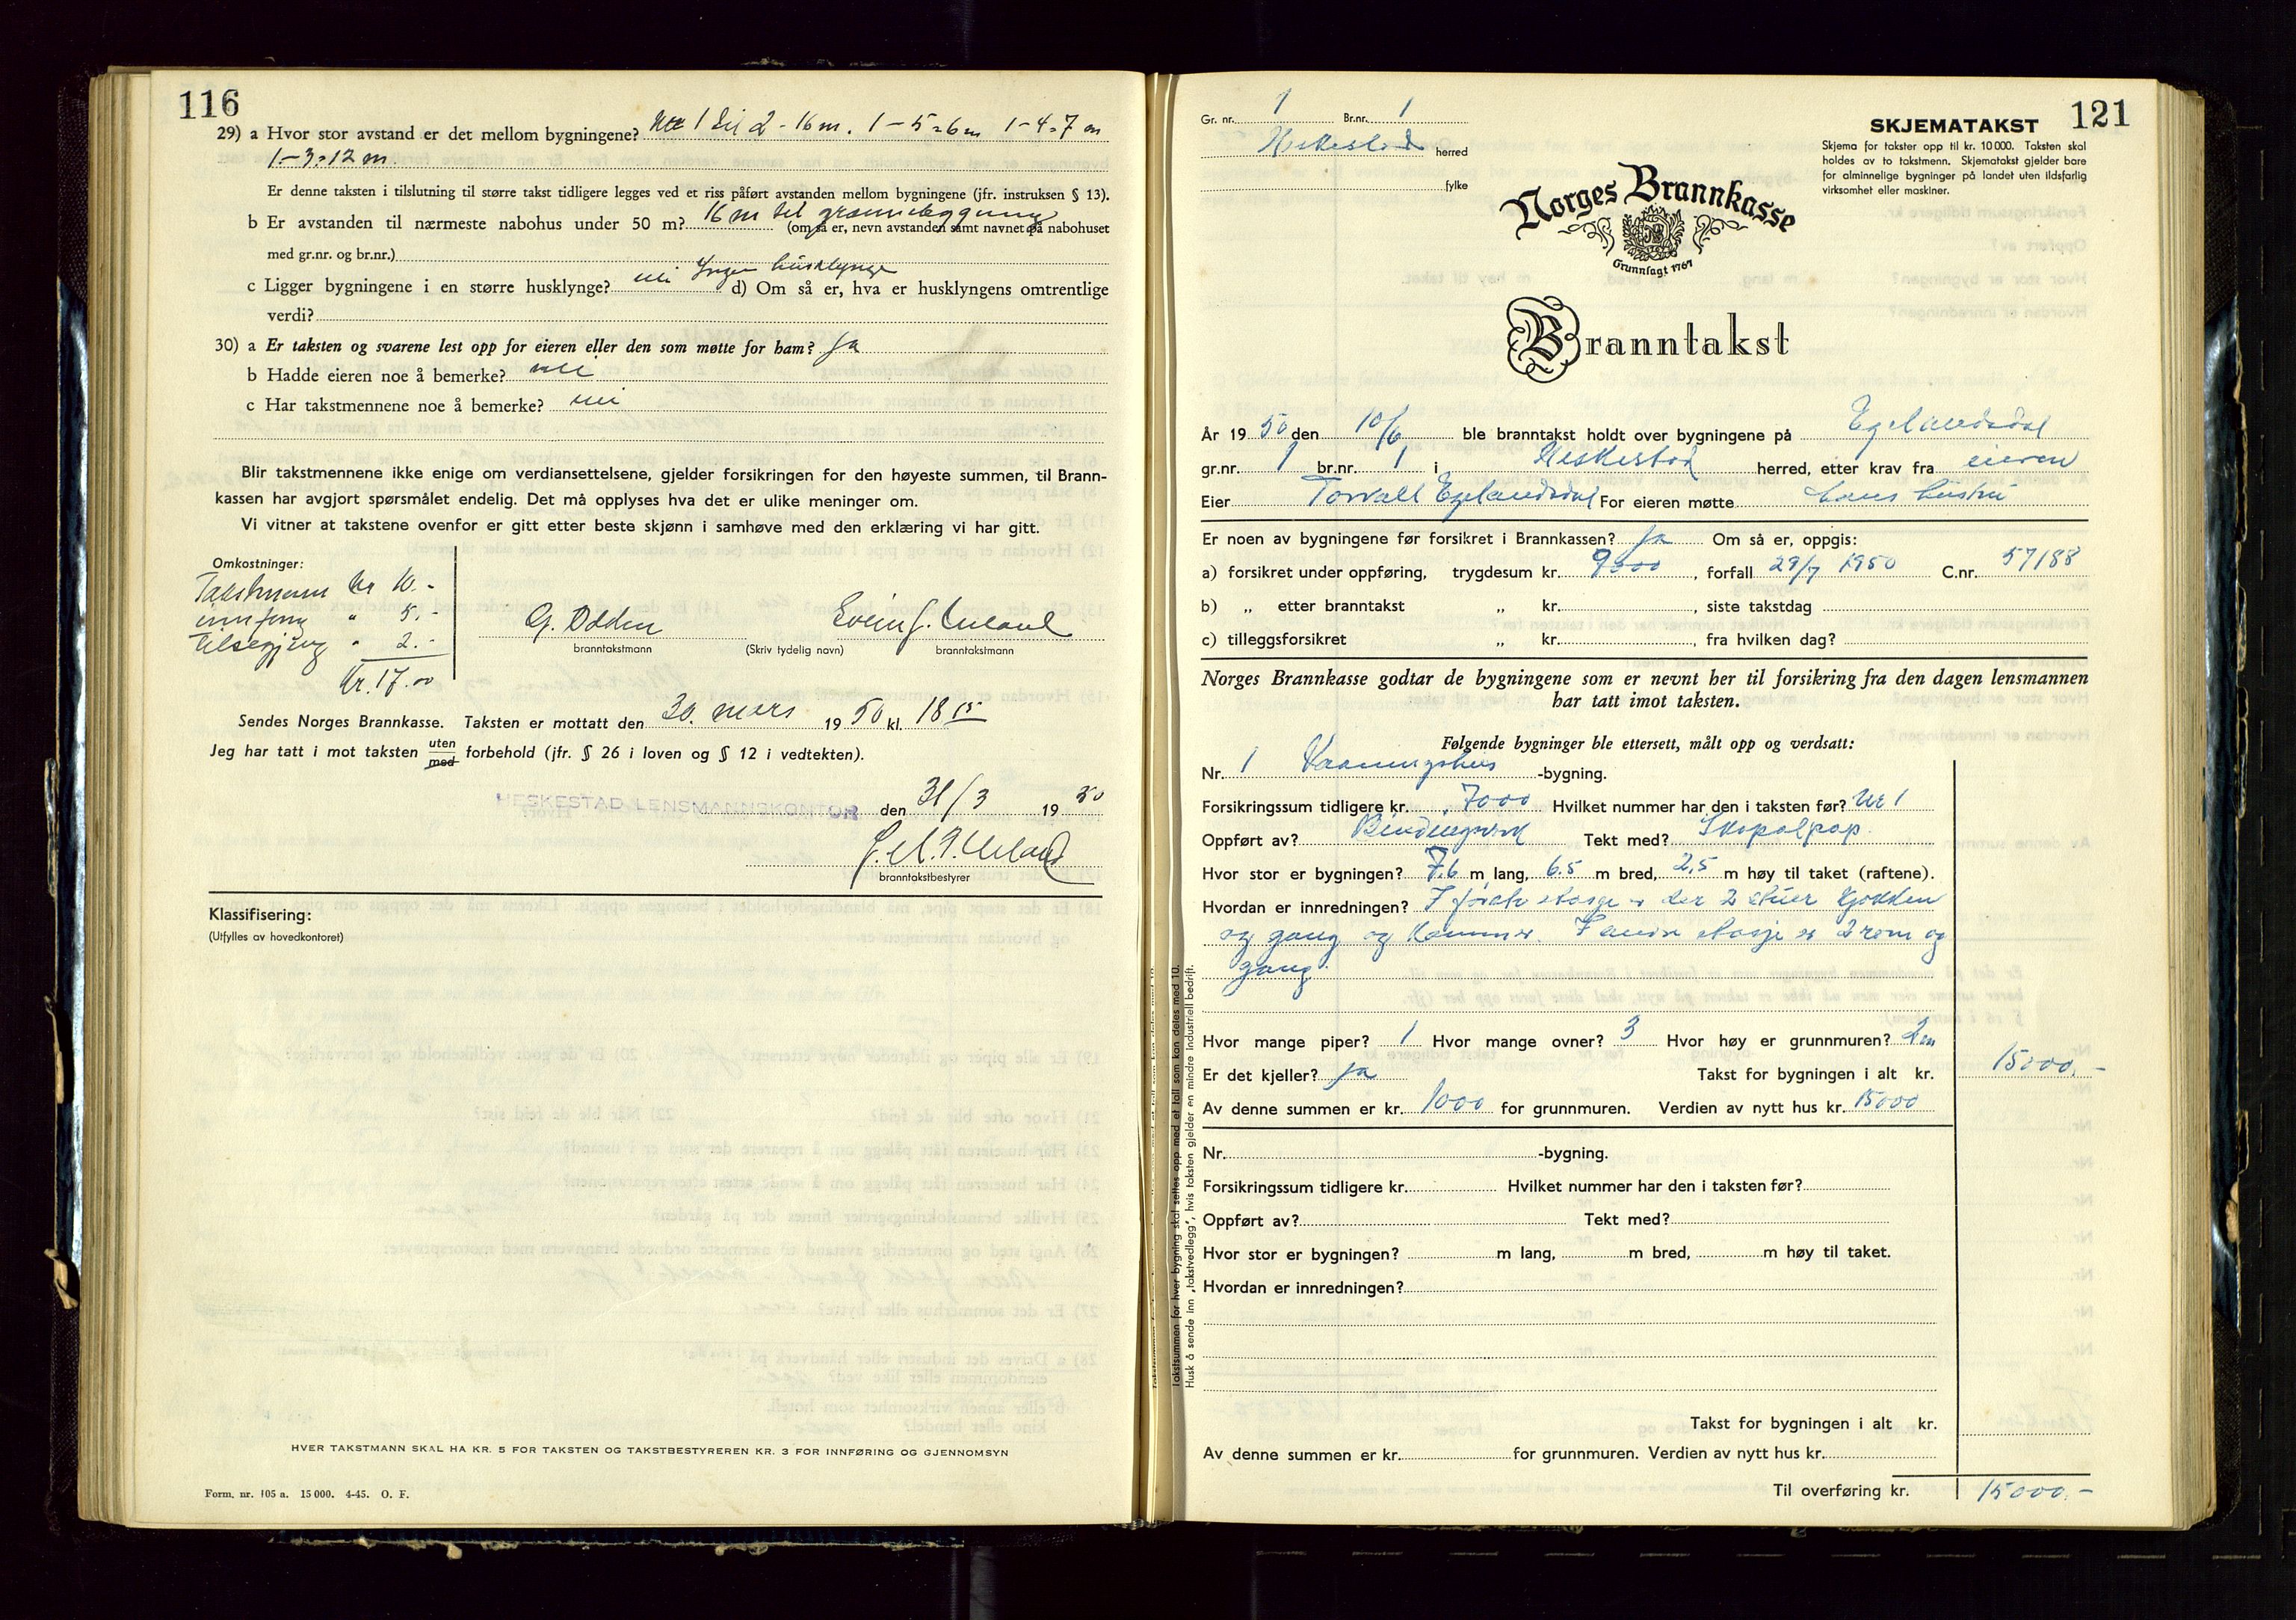 116
29) a Hvor stor avstand er det mellom bygningene? Nr 1 til 2 - 16 m. 1 - 5 = 6 m 1 - 4 = 7 m
1 - 3 = 12 m.
Er denne taksten i tilslutning til større takst tidligere legges ved et riss påført avstanden mellom bygningene (jfr. instruksen § 13).
b Er avstanden til nærmeste nabohus under 50 m? 16 m til grannebygning (om så er, nevn avstanden samt navnet på nabohuset
med gr.nr. og br.nr.)
c Ligger bygningene i en større husklynge? nei Ingen husklynge d) Om så er, hva er husklyngens omtrentlige
verdi?
30) a Er taksten og svarene lest opp for eieren eller den som møtte for ham? ja
b Hadde eieren noe å bemerke? nei
c Har takstmennene noe å bemerke? nei
Blir takstmennene ikke enige om verdiansettelsene, gjelder forsikringen for den høyeste summen, til Brann-
kassen har avgjort spørsmålet endelig. Det må opplyses hva det er ulike meninger om.
Vi vitner at takstene ovenfor er gitt etter beste skjønn i samhøve med den erklæring vi har gitt.
Omkostninger:
Takstmenn kr 10.-
innføring " 5.-
" 2.-
Kr. 17.00
G. Odden Svein J. Ueland
branntakstmann (Skriv tydelig navn) branntakstmann
Sendes Norges Brannkasse. Taksten er mottatt den 30. mars 1950 kl. 18 15
Jeg har tatt i mot taksten uten med forbehold (jfr. § 26 i loven og § 12 i vedtekten).
HESKESTAD LENSMANNSKONTOR den 31/3 1950
Ueland
branntakstbestyrer
Klassifisering:
(Utfylles av hovedkontoret)
HVER TAKSTMANN SKAL HA KR. 5 FOR TAKSTEN OG TAKSTBESTYREREN KR. 3 FOR INNFØRING OG GJENNOMSYN
Form. nr. 105 a. 15 000. 4-45. O. F.
121
Gr. nr. 1 Br.nr. 1
Heskestad herred
fylke
SKJEMATAKST
Skjema for takster opp til kr. 10 000. Taksten skal
holdes av to takstmenn. Skjematakst gjelder bare
for alminnelige bygninger på landet uten ildsfarlig
virksomhet eller maskiner.
Norges Brannkasse
Grunnlagt 1767
Branntakst
År 1950 den 10/6 ble branntakst holdt over bygningene på Egelandsdal
gr.nr. 1 br.nr. 1 i Heskestad herred, etter krav fra eieren
Eier Torvall Egelandsdal For eieren møtte hans hustru
Er noen av bygningene før forsikret i Brannkassen? ja Om så er, oppgis:
a) forsikret under oppføring, trygdesum kr. 9000, forfall 29/7 1950 C.nr. 57188
b) „ etter branntakst „ kr. , siste takstdag
c) tilleggsforsikret „ kr. , fra hvilken dag?
Norges Brannkasse godtar de bygningene som er nevnt her til forsikring fra den dagen lensmannen
har tatt imot taksten.
Følgende bygninger ble ettersett, målt opp og verdsatt:
Nr. 1 Vaaningshus -bygning.
Forsikringssum tidligere kr. 7000 Hvilket nummer har den i taksten før? Nr 1
Oppført av? Bindingverk Tekt med? Skopalpap.
Hvor stor er bygningen? 7.6 m lang, 6.5 m bred, 2.5 m høy til taket (raftene).
Hvordan er innredningen? I første etasje er der 2 stuer Kjøkken
og gang og Kammer. I anden etasje er 2 rom og
gang.
Hvor mange piper? 1 Hvor mange ovner? 3 Hvor høy er grunnmuren? 2 m
Er det kjeller? ja Takst for bygningen i alt kr. 15000.-
Av denne summen er kr. 1000 for grunnmuren. Verdien av nytt hus kr. 15000
Nr. -bygning.
Forsikringssum tidligere kr. Hvilket nummer har den i taksten før?
Oppført av? Tekt med?
Hvor stor er bygningen? m lang, m bred, m høy til taket.
Hvordan er innredningen?
Takst for bygningen i alt kr.
Av denne summen er kr. for grunnmuren. Verdien av nytt hus kr.
Til overføring kr. 15000.-
Takstsummen for hver bygning skal settes opp med et tall som kan deles med 10.
Husk å sende inn „takstvedlegg", hvis taksten gjelder en mindre industriell bedrift.